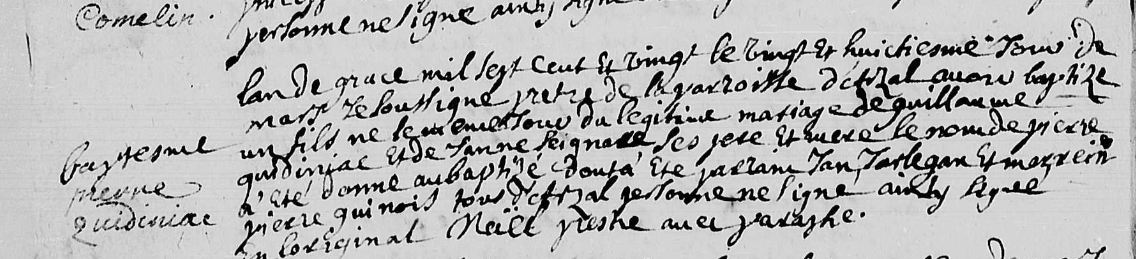 Comelin.
personne ne signe ainsy signe
lan de grace mil sept cent et vingt le vingt et huictiesme Jour de
mars Je soussigne pretre de la parroisse avoir baptize
un fils ne le meme Jour du legitime mariage de guillaume
quidiniac et de Janne seignare ses pere et mere le nom de pierre
a été donne au baptizé dont a été parrain Jan Jarlegan et marrein
pierre quinois tous personne ne signe ainsy signe
En loreginal Naël prestre avec paraphe.
baptesme
pierre
quidiniac